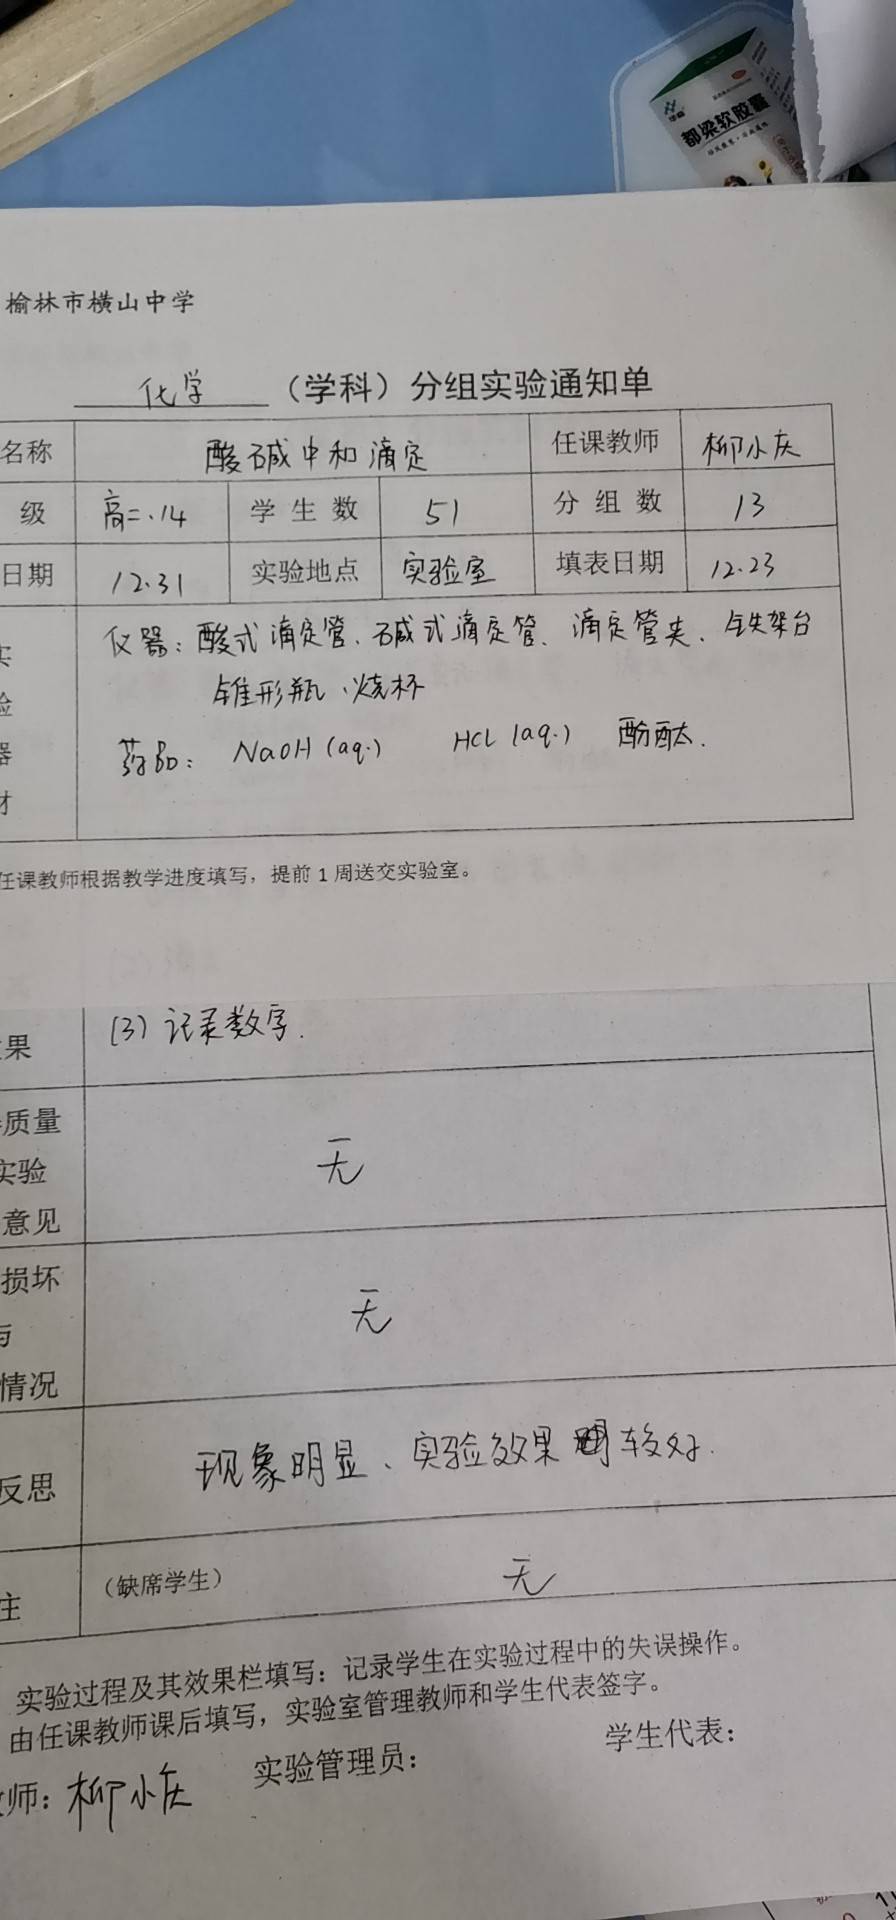 都梁软胶囊
榆林市横山中学
化学（学科）分组实验通知单
名称 酸碱中和滴定 任课教师 柳小庆
级 高二.14 学生数 51 分组数 13
日期 12.31 实验地点 实验室 填表日期 12.23
实
验
器
材
仪器：酸式滴定管、碱式滴定管、滴定管夹、铁架台
锥形瓶、烧杯
药品： NaOH (aq.) HCl (aq.) 酚酞.
任课教师根据教学进度填写，提前1周送交实验室。
果 (3) 记录数字.
质量
实验
意见
无
损坏
与
情况
无
反思 现象明显、实验效果较好.
注 （缺席学生） 无
实验过程及其效果栏填写：记录学生在实验过程中的失误操作。
由任课教师课后填写，实验室管理教师和学生代表签字。
师：柳小庆 实验管理员： 学生代表：